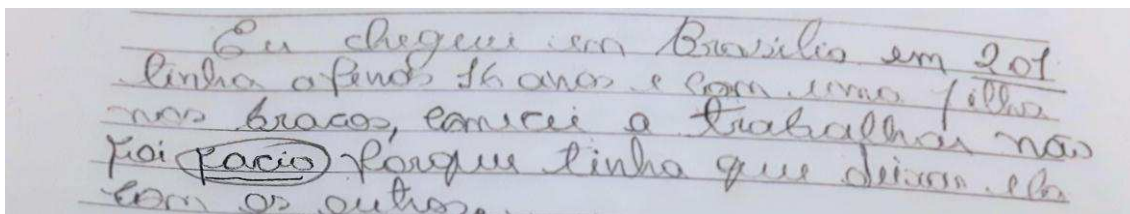 Eu cheguei em Brasilia em 201
tinha apenas 16 anos e com uma filha
nos bracos, comecei a trabalhar não
foi facio porque tinha que deixar ela
com os outros.